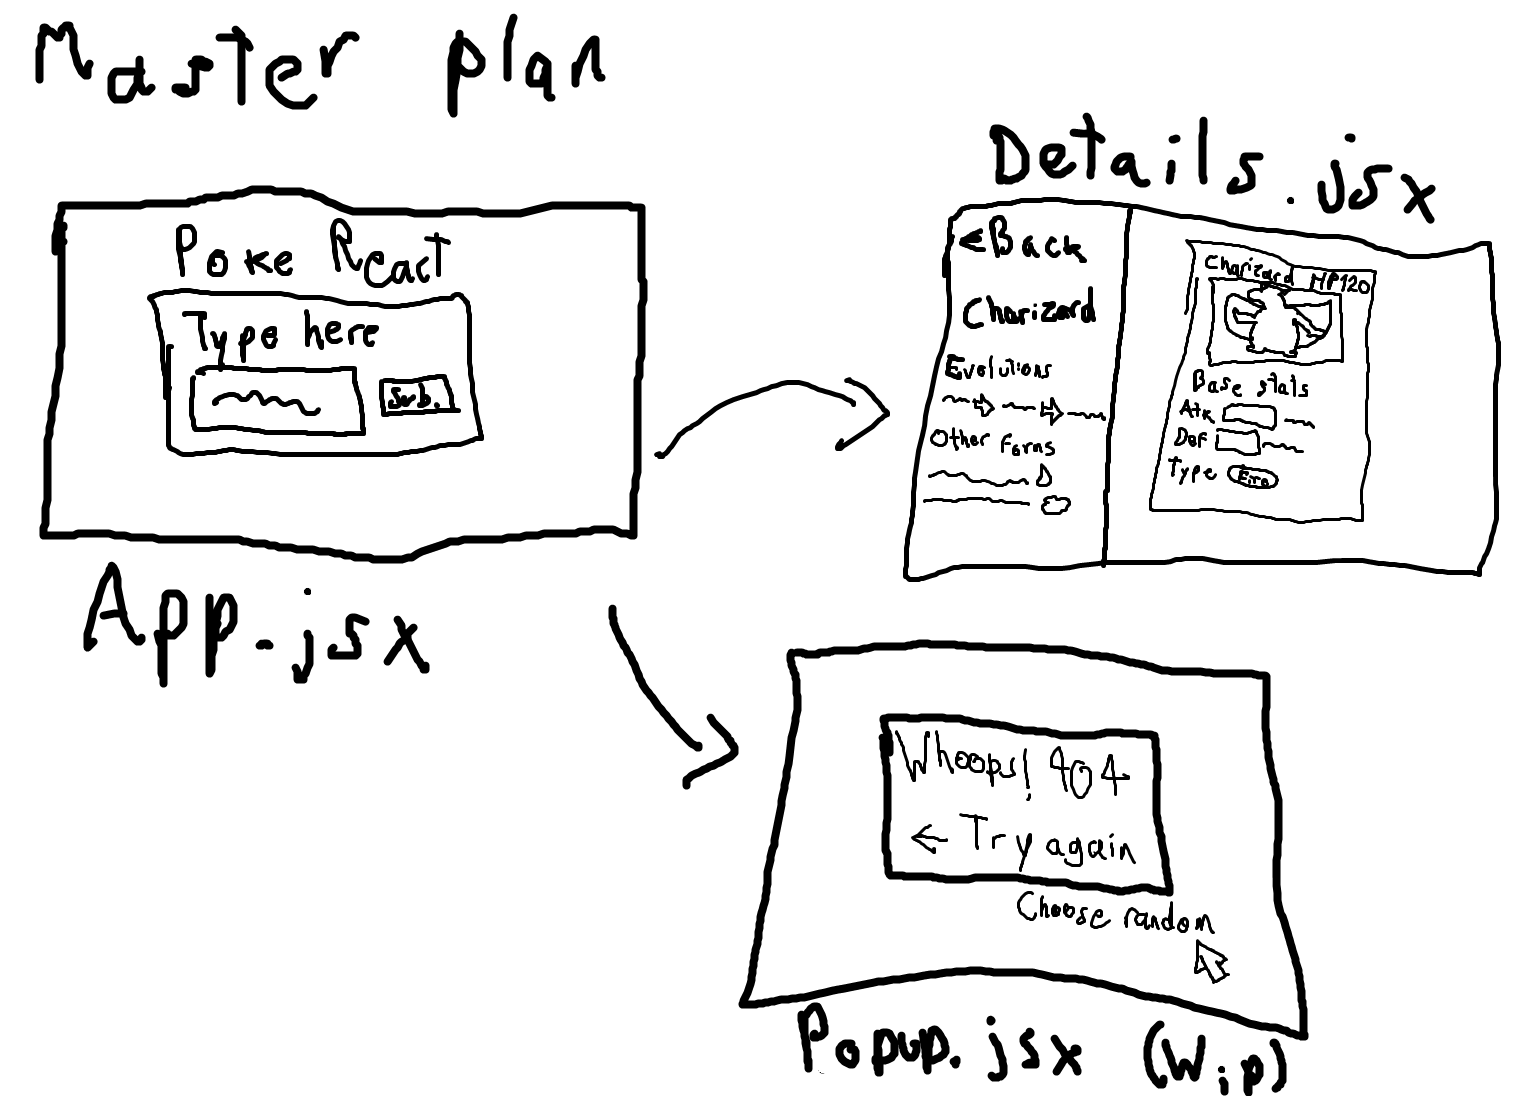 Master plan
Poke React
Type here
Sub.
App.jsx
Details.jsx
Back
Charizard
Evolutions
Other Forms
Charizard HP120
Base stats
Atk
Def
Type Fire
Whoops! 404
← Try again
Choose random
Popup.jsx (Wip)